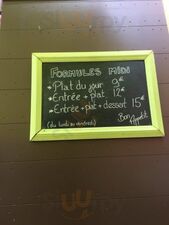 FORMULES MIDI
* Plat du jour 9€
* Entrée + plat 12€
* Entrée + plat + dessert 15€
(du lundi au vendredi)
Bon Appétit